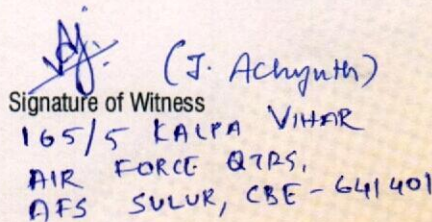 (J. Achyuth)
Signature of Witness
165/5 KALPA VIHAR
AIR FORCE QTRS,
AFS SULUR, CBE - 641401